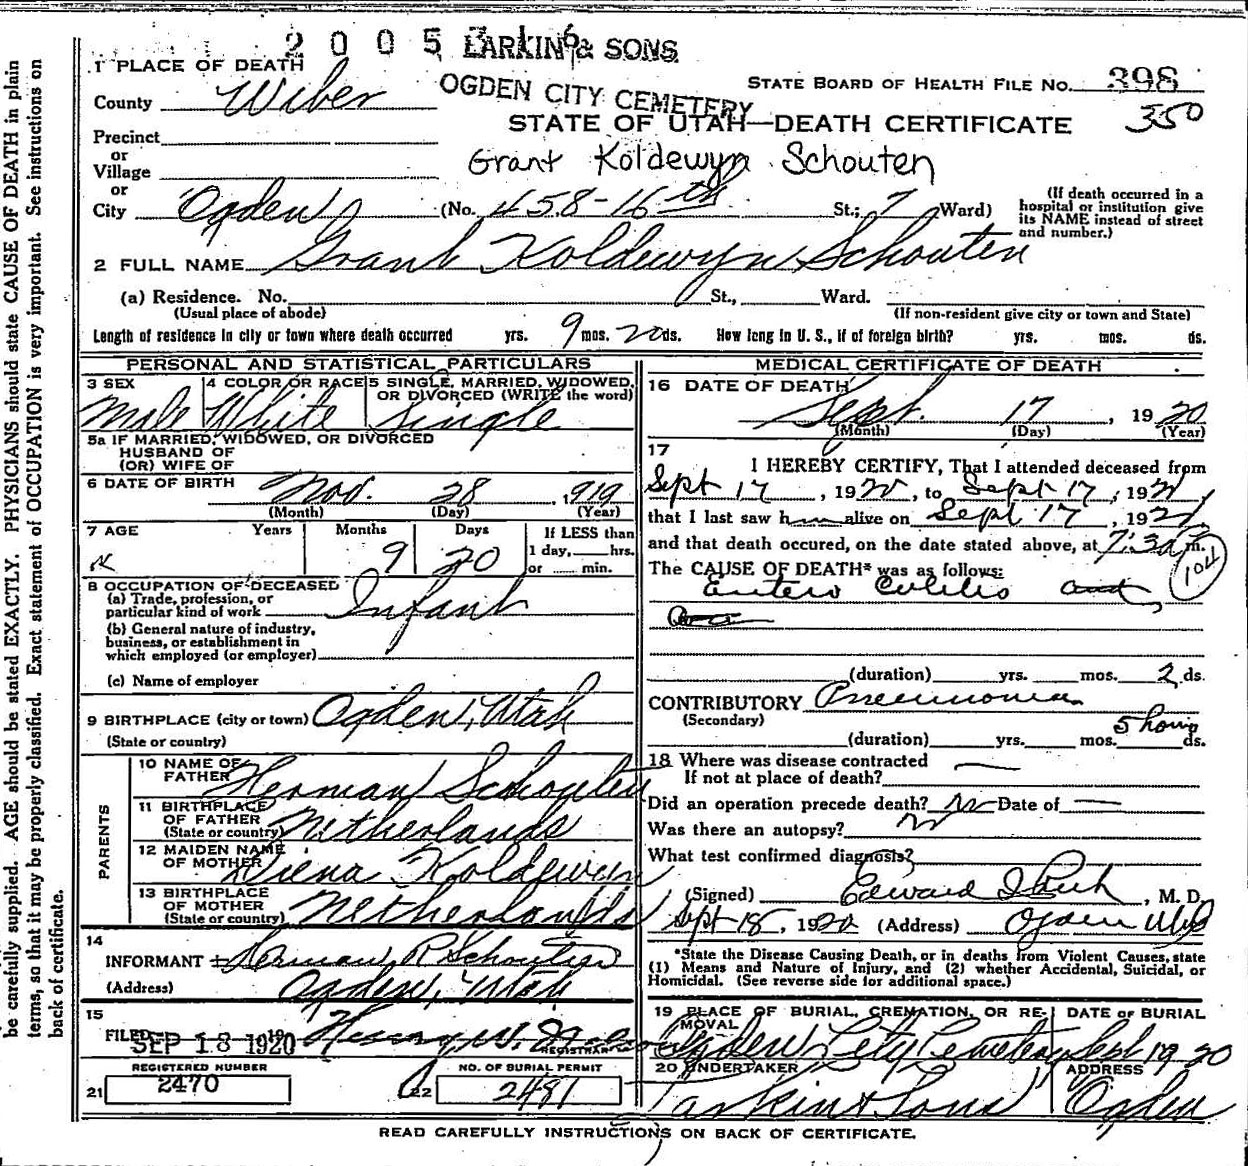 2005 LARKIN & SONS
OGDEN CITY CEMETERY
STATE BOARD OF HEALTH FILE NO. 398
350
STATE OF UTAH—DEATH CERTIFICATE
Grant Koldewyn Schouten
1 PLACE OF DEATH
County Weber
Precinct
or
Village
or
City Ogden (No. 458-16th St.; 7 Ward)
(If death occurred in a hospital or institution give its NAME instead of street and number.)
2 FULL NAME Grant Koldewyn Schouten
(a) Residence. No. St., Ward.
(Usual place of abode) (If non-resident give city or town and State)
Length of residence in city or town where death occurred yrs. 9 mos. 20 ds. How long in U. S., if of foreign birth? yrs. mos. ds.
PERSONAL AND STATISTICAL PARTICULARS
3 SEX Male
4 COLOR OR RACE White
5 SINGLE, MARRIED, WIDOWED, OR DIVORCED (WRITE the word) Single
5a IF MARRIED, WIDOWED, OR DIVORCED
HUSBAND OF
(OR) WIFE OF
6 DATE OF BIRTH Nov. 28, 1919
(Month) (Day) (Year)
7 AGE Years Months 9 Days 20
If LESS than 1 day, hrs. or min.
8 OCCUPATION OF DECEASED
(a) Trade, profession, or particular kind of work Infant
(b) General nature of industry, business, or establishment in which employed (or employer)
(c) Name of employer
9 BIRTHPLACE (city or town) Ogden, Utah
(State or country)
PARENTS
10 NAME OF FATHER Herman Schouten
11 BIRTHPLACE OF FATHER (State or country) Netherlands
12 MAIDEN NAME OF MOTHER Diena Koldewyn
13 BIRTHPLACE OF MOTHER (State or country) Netherlands
14 INFORMANT Herman R Schouten
(Address) Ogden, Utah
15 FILED SEP 18 1920 19 Henry W.
REGISTRAR
21 REGISTERED NUMBER 2470
22 NO. OF BURIAL PERMIT 2481
MEDICAL CERTIFICATE OF DEATH
16 DATE OF DEATH Sept. 17, 1920
(Month) (Day) (Year)
17 I HEREBY CERTIFY, That I attended deceased from
Sept 17, 1920, to Sept 17, 192
that I last saw him alive on Sept 17, 192
and that death occured, on the date stated above, at 7:30 m.
104
The CAUSE OF DEATH* was as follows:
Entero Colitis and
(duration) yrs. mos. 2 ds.
CONTRIBUTORY Pneumonia
(Secondary)
5 hours
(duration) yrs. mos. ds.
18 Where was disease contracted
If not at place of death? —
Did an operation precede death? no Date of —
Was there an autopsy? no
What test confirmed diagnosis?
(Signed) Edward I Rich, M. D.
Sept 18, 1920 (Address) Ogden Utah
*State the Disease Causing Death, or in deaths from Violent Causes, state
(1) Means and Nature of Injury, and (2) whether Accidental, Suicidal, or
Homicidal. (See reverse side for additional space.)
19 PLACE OF BURIAL, CREMATION, OR REMOVAL Ogden City Cemetery
DATE OF BURIAL Sept 19 20
20 UNDERTAKER Larkin & Sons
ADDRESS Ogden
READ CAREFULLY INSTRUCTIONS ON BACK OF CERTIFICATE.
be carefully supplied. AGE should be stated EXACTLY. PHYSICIANS should state CAUSE OF DEATH in plain
terms, so that it may be properly classified. Exact statement of OCCUPATION is very important. See instructions on
back of certificate.